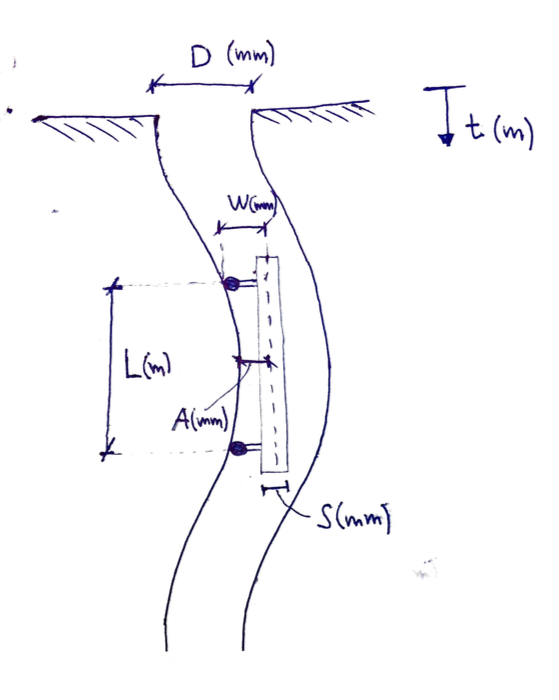 D (mm)
t (m)
W(mm)
L(m)
A(mm)
S(mm)